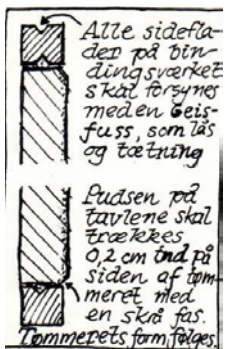 Alle sidefla-
der på bin-
dingsværket
skal forsynes
med en Geis-
fuss, som lås
og tætning
Pudsen på
tavlene skal
trækkes
0,2 cm ind på
siden af tøm-
meret med
en skrå fas.
Tømmerets form følges.